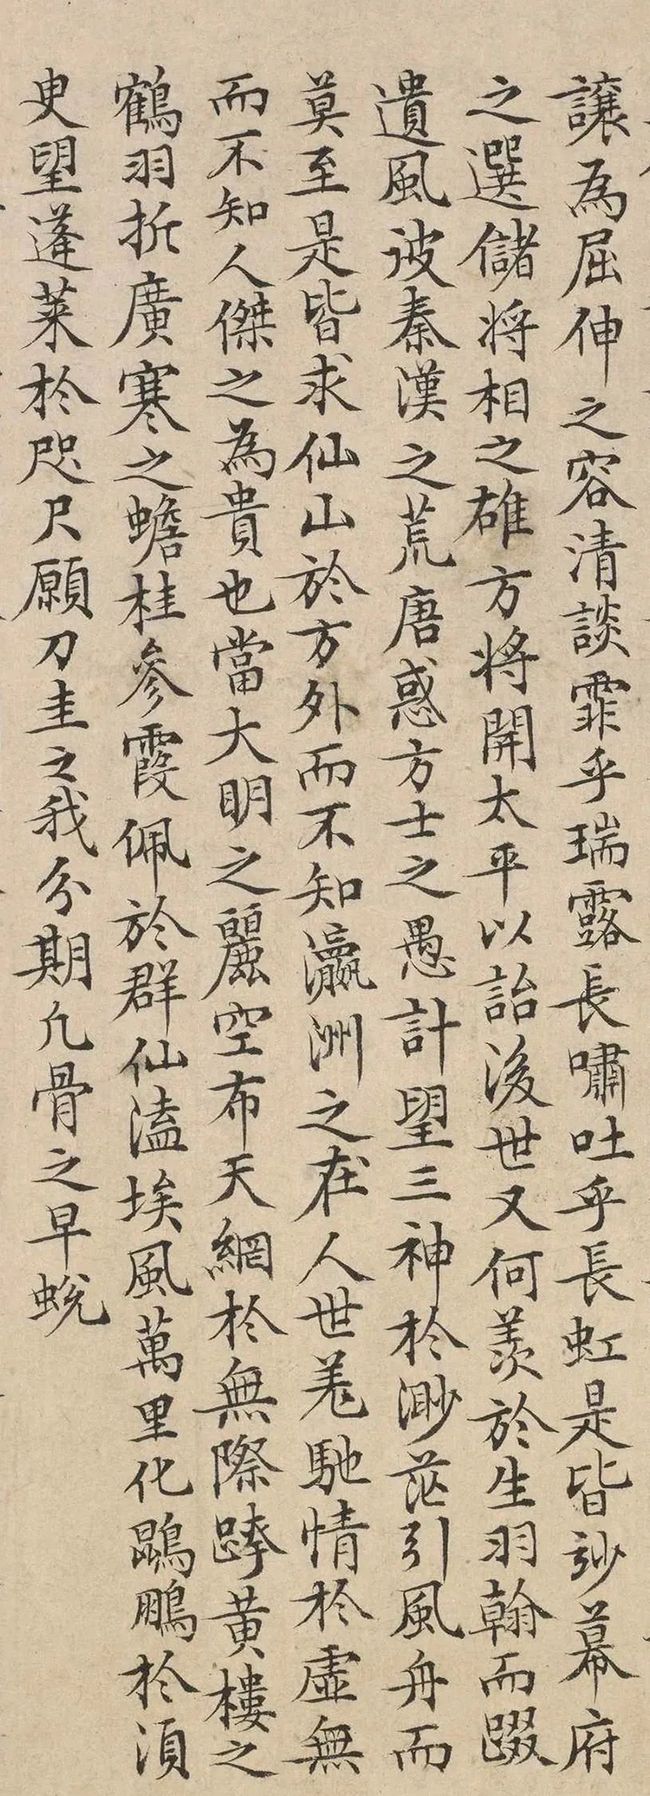 譲為屈伸之容清談霏乎瑞露長嘯吐乎長虹是皆玅幕府
之選儲將相之雄方将開太平以詒後世又何羨於生羽翰而躡
遺風彼秦漢之荒唐惑方士之愚計望三神於渺茫引風舟而
莫至是皆求仙山於方外而不知瀛洲之在人世羌馳情於虛無
而不知人傑之為貴也當大明之麗空布天網於無際跨黄樓之
鶴羽折廣寒之蟾桂參霞佩於群仙溘埃風萬里化鵾鵬於湏
臾望蓬萊於咫尺願刀圭之我分期凢骨之早蛻